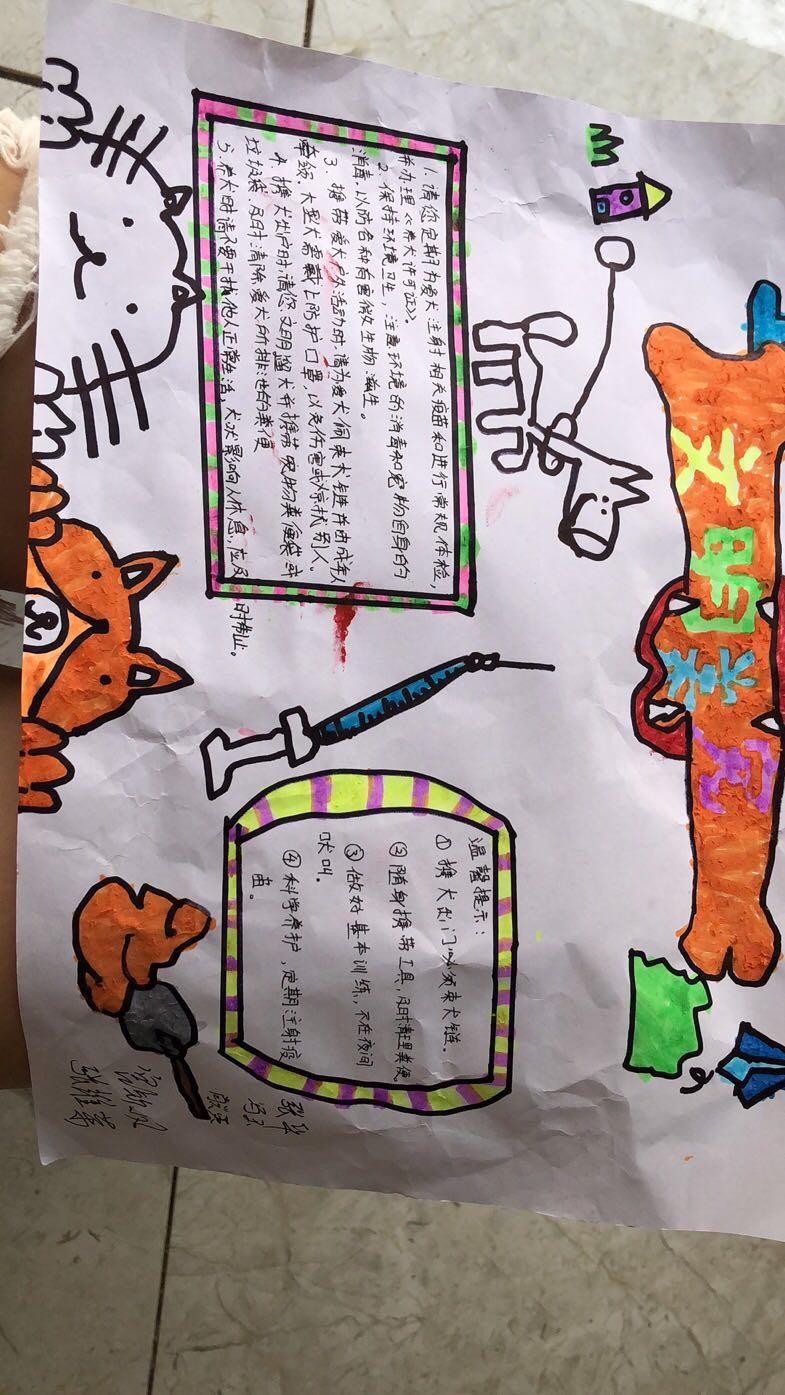 文明养犬
1.请您定期为爱犬注射相关疫苗和进行常规体检,
并办理《养犬许可证》。
2.保持环境卫生,注意环境的消毒和宠物自身的
消毒,以防各种有害微生物滋生。
3.携带爱犬户外活动时,请为爱犬佩束犬链并由成年人
牵领.大型犬需戴上防护口罩,以免伤害或惊扰别人。
4.携犬出户时,请您文明遛犬并携带宠物粪便袋或
垃圾袋,及时清除爱犬所排泄的粪便
5.养犬时请不要干扰他人正常生活,犬吠影响人休息,应及时制止。
温馨提示:
①携犬出门必须束犬链。
②随身携带工具,及时清理粪便。
③做好基本训练,不在夜间
吠叫.
④科学养护,定期注射疫
苗。